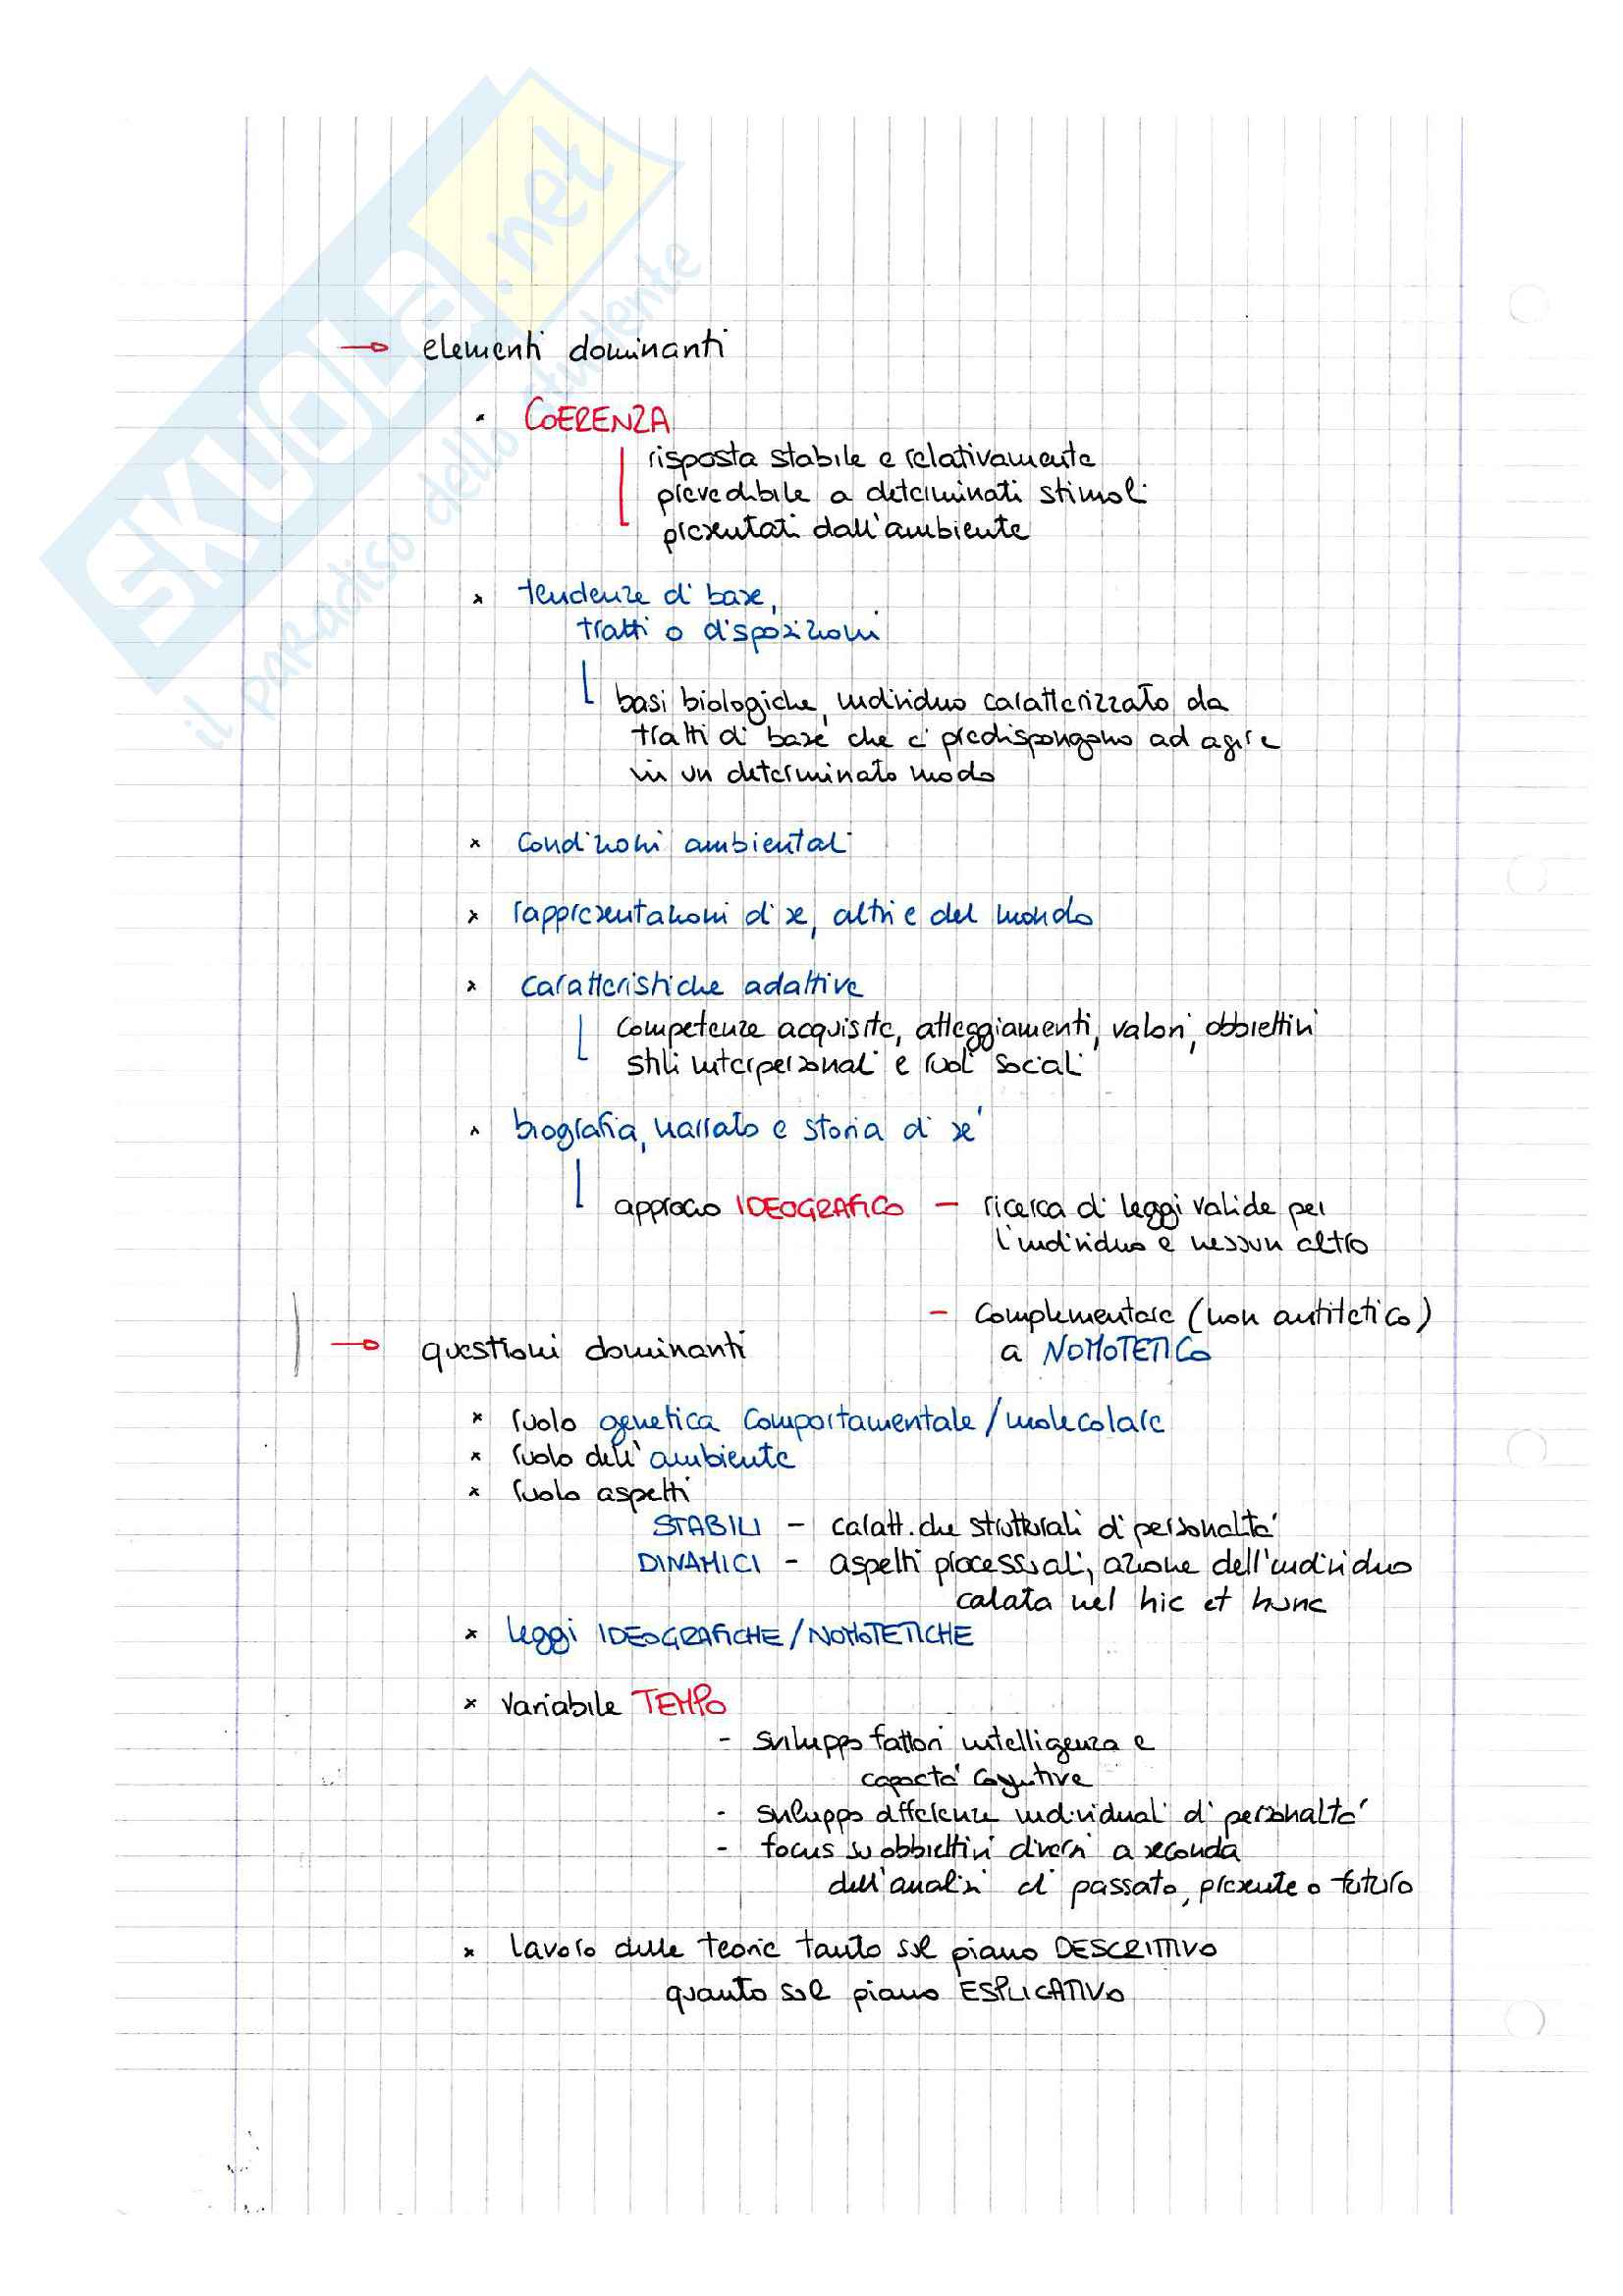 SKUOLA.net
il paradiso dello studente
→ elementi dominanti
• COERENZA
risposta stabile e relativamente
prevedibile a determinati stimoli
presentati dall'ambiente
× tendenze di base,
tratti o disposizioni
basi biologiche, individuo caratterizzato da
tratti di base che ci predispongono ad agire
in un determinato modo
× condizioni ambientali
× rappresentazioni di se, altri e del mondo
× caratteristiche adattive
competenze acquisite, atteggiamenti, valori, obbiettivi
stili interpersonali e ruoli sociali
× biografia, narrato e storia di se'
approcio IDEOGRAFICO – ricerca di leggi valide per
l'individuo e nessun altro
– complementare (non antitetico)
a NOMOTETICO
→ questioni dominanti
× ruolo genetica comportamentale/molecolare
× ruolo dell'ambiente
× ruolo aspetti
STABILI – caratt.che strutturali di personalita'
DINAMICI – aspetti processuali, azione dell'individuo
calata nel hic et nunc
× leggi IDEOGRAFICHE/NOMOTETICHE
× variabile TEMPO
- sviluppo fattori intelligenza e
capacita' cognitive
- sviluppo differenze individuali di personalita'
- focus su obbiettivi diversi a seconda
dell'analisi di passato, presente o futuro
× lavoro delle teorie tanto sul piano DESCRITTIVO
quanto sul piano ESPLICATIVO